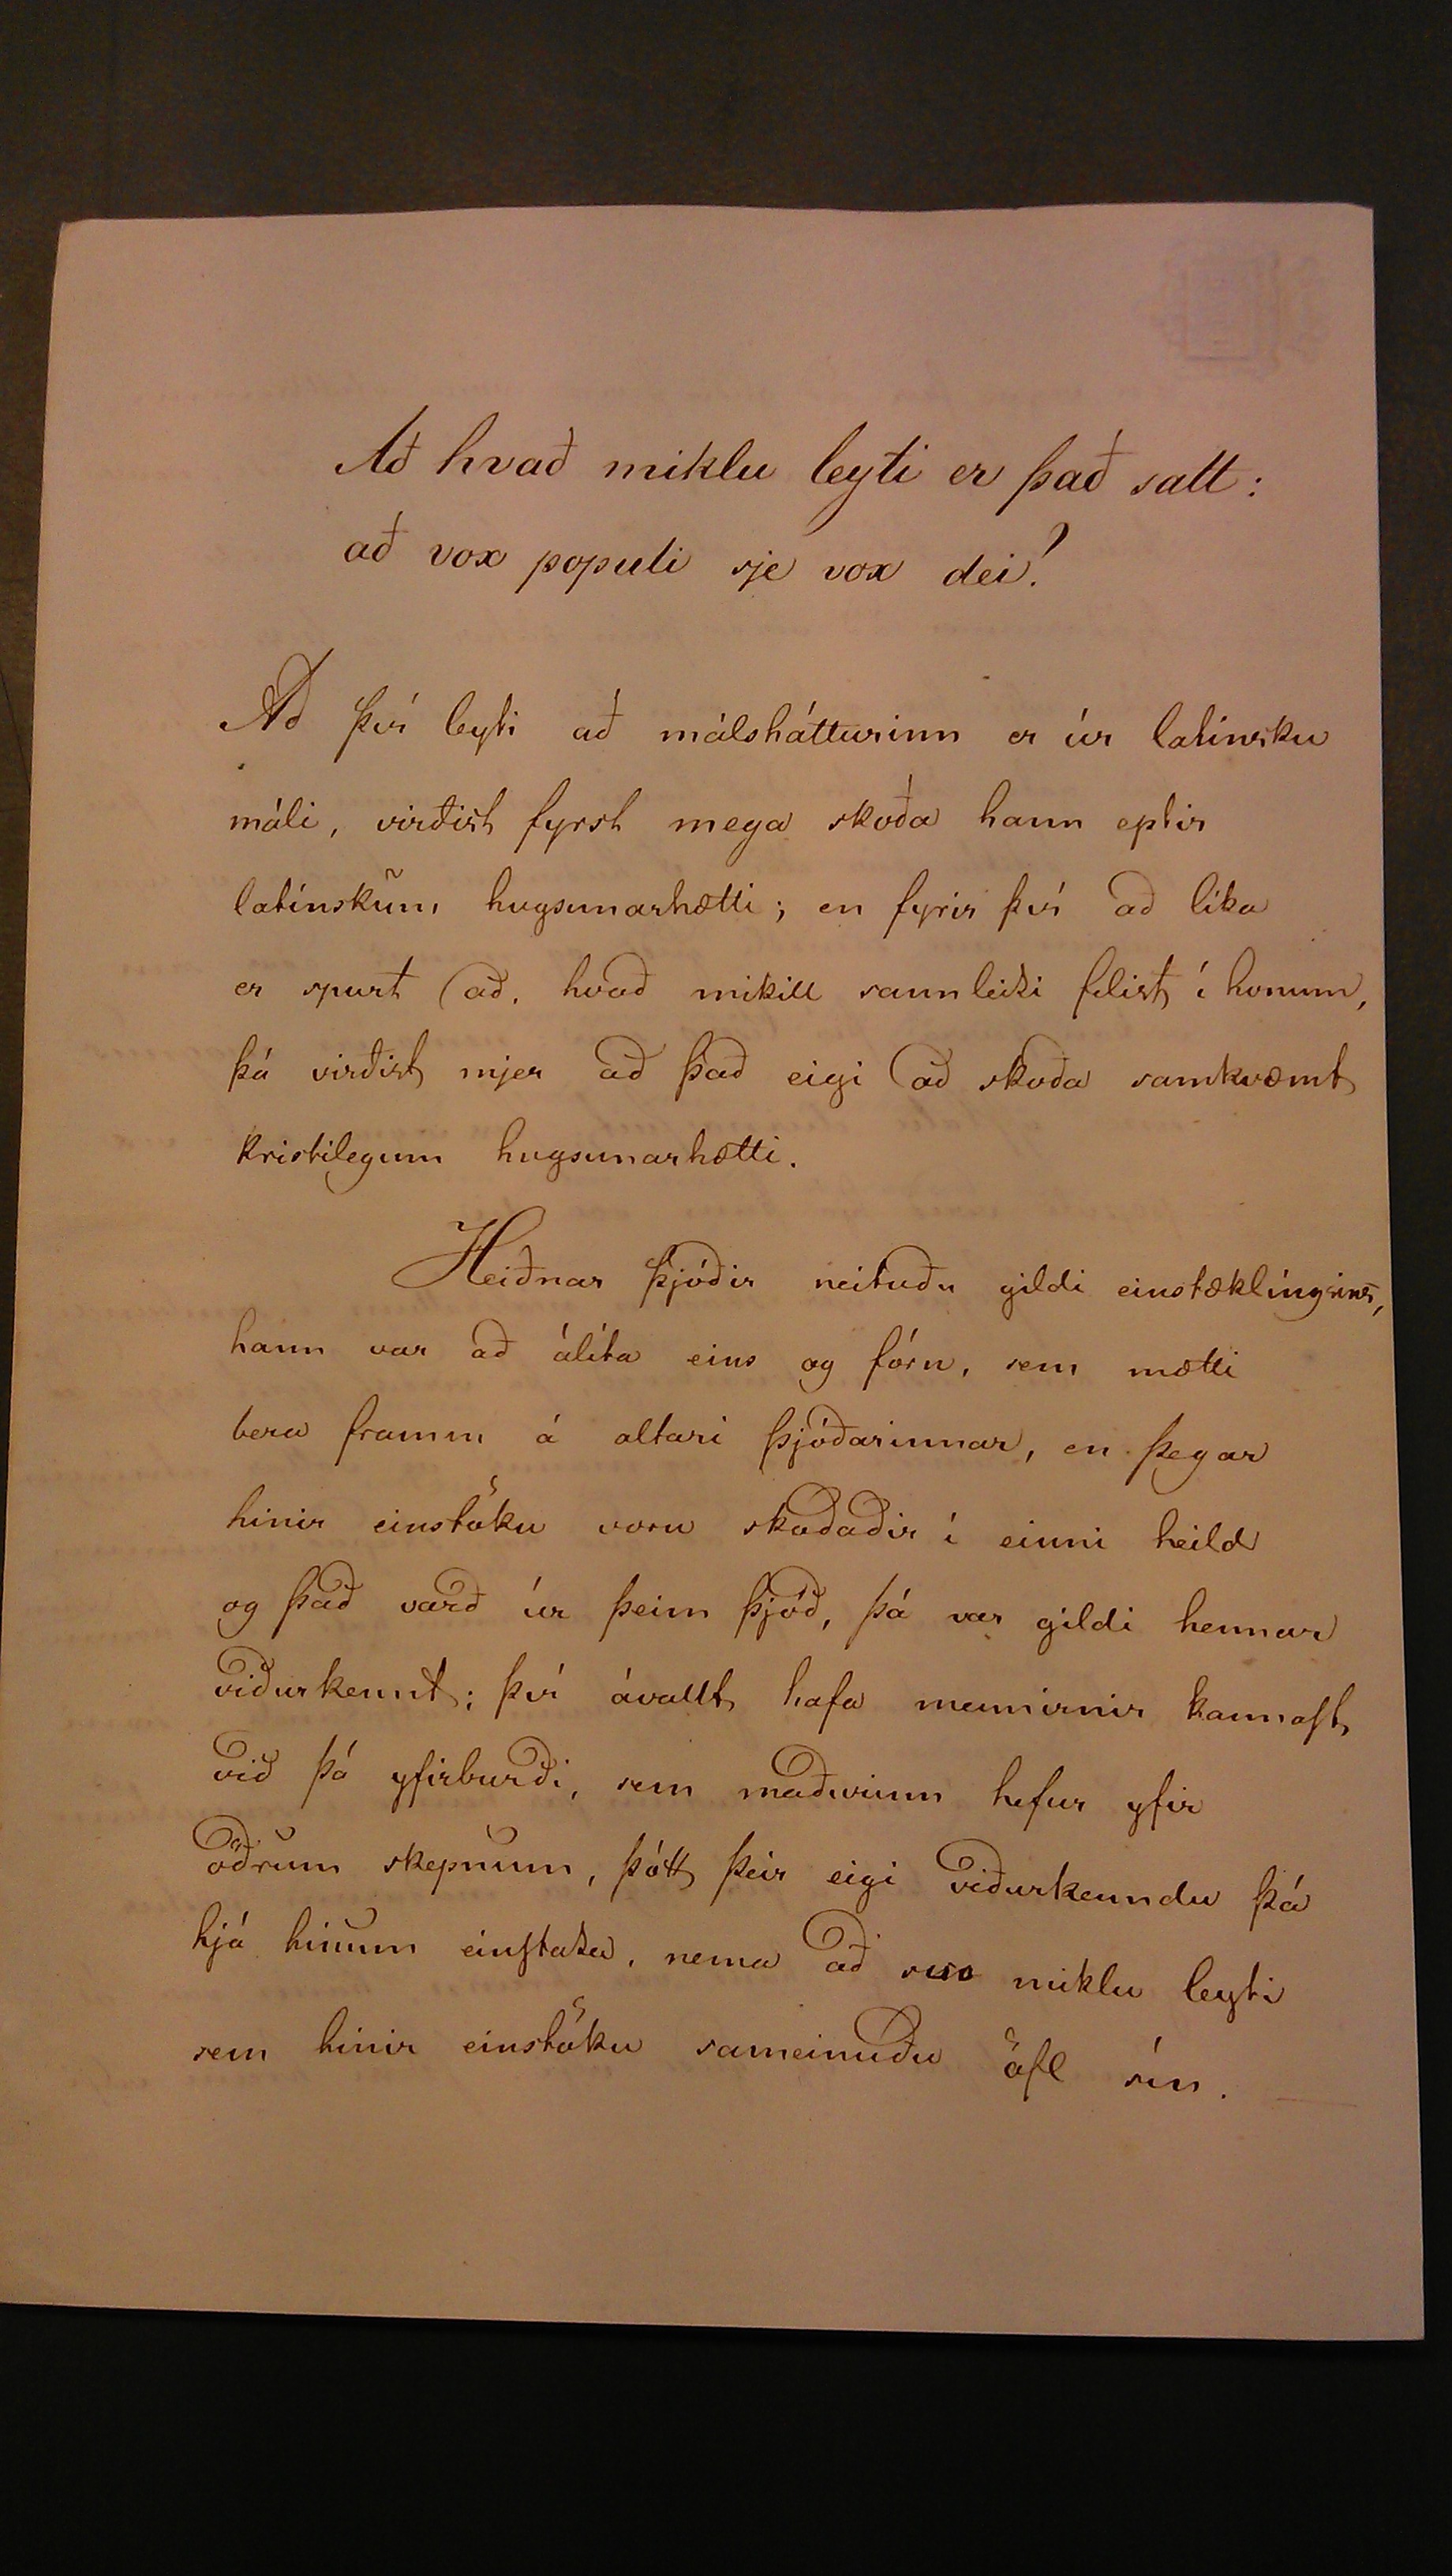 Að hvað miklu leyti er það satt:
að vox populi sje vox dei?
Að því leyti að málshátturinn er úr latínsku
máli, virðist fyrst mega skoða hann eptir
latínskum hugsunarhætti; en fyrir því að líka
er spurt að, hvað mikill sannleiki felist í honum,
þá virðist mjer að það eigi að skoða samkvæmt
kristilegum hugsunarhætti.
Heiðnar þjóðir neituðu gildi einstæklíngsins,
hann var að álíta eins og fórn, sem mætti
bera framm á altari þjóðarinnar, en þegar
hinir einstöku voru skoðaðir í einni heild
og það varð úr þeim þjóð, þá var gildi hennar
viðurkennt; því ávallt hafa mennirnir kannast
við þá yfirburði, sem maðurinn hefur yfir
öðrum skepnum, þótt þeir eigi viðurkenndu þá
hjá hinum einstaka, nema að svo miklu leyti
sem hinir einstöku sameinuðu öfl sín.